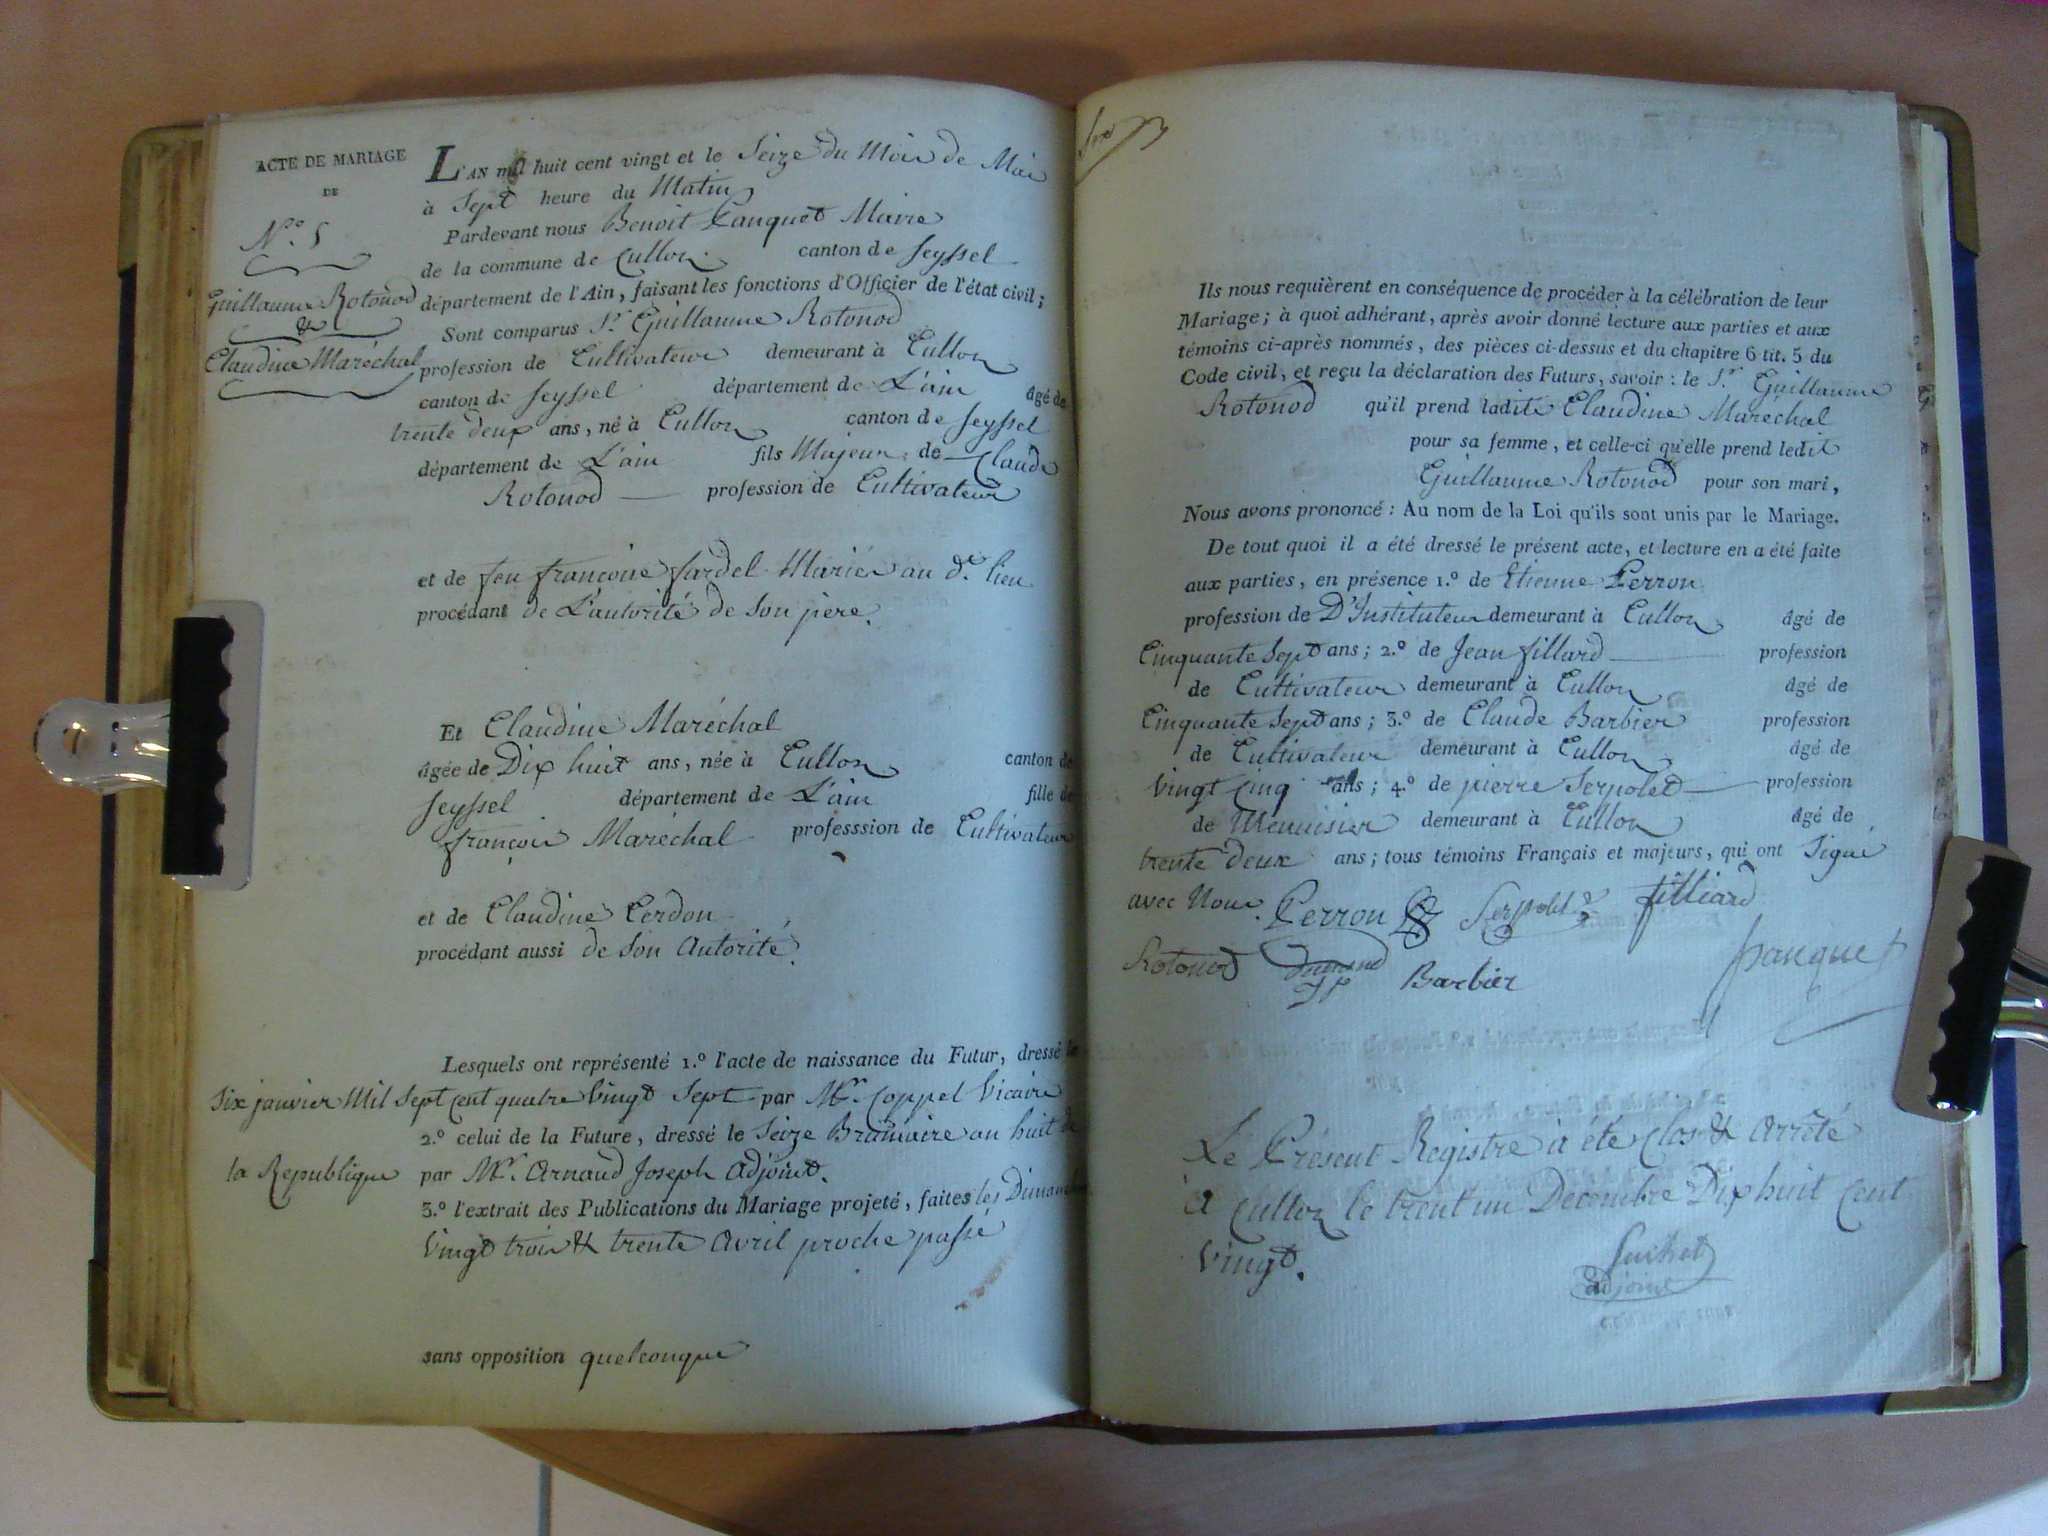 ACTE DE MARIAGE
DE
N.º 5
Guillaume Rotonod
&
Claudine Maréchal
L'AN mil huit cent vingt et le Seize du Mois de Mai
à Sept heure du Matin
Pardevant nous Benoit Panquet Maire
de la commune de Culloz canton de Seyssel
département de l'Ain, faisant les fonctions d'Officier de l'état civil;
Sont comparus Sr. Guillaume Rotonod
profession de Cultivateur demeurant à Culloz
canton de Seyssel département de L'ain âgé de
trente deux ans, né à Culloz canton de Seyssel
département de L'ain fils Majeur de Claude
Rotonod profession de Cultivateur
et de feu françoise fardel Mariés au dt. lieu
procédant de L'autorité de Son père.
Et Claudine Maréchal
âgée de Dix huit ans, née à Culloz canton de
Seyssel département de L'ain fille de
françois Maréchal professsion de Cultivateur
et de Claudine Perdon
procédant aussi de Son Autorité.
Lesquels ont représenté 1.º l'acte de naissance du Futur, dressé le
Six janvier Mil Sept Cent quatre Vingt Sept par Mr. Coppel Vicaire
2.º celui de la Future, dressé le Seize Brumaire an huit de
la Republique par Mr. Arnaud Joseph Adjoint.
3.º l'extrait des Publications du Mariage projeté, faites les Dimanches
Vingt trois & trente Avril proche passé
sans opposition quelconque
Ils nous requièrent en conséquence de procéder à la célébration de leur
Mariage; à quoi adhérant, après avoir donné lecture aux parties et aux
témoins ci-après nommés, des pièces ci-dessus et du chapitre 6 tit. 5 du
Code civil, et reçu la déclaration des Futurs, savoir: le Sr. Guillaume
Rotonod qu'il prend ladite Claudine Maréchal
pour sa femme, et celle-ci qu'elle prend ledit
Guillaume Rotonod pour son mari,
Nous avons prononcé: Au nom de la Loi qu'ils sont unis par le Mariage.
De tout quoi il a été dressé le présent acte, et lecture en a été faite
aux parties, en présence 1.º de Etienne Perron
profession de D'Instituteur demeurant à Culloz âgé de
Cinquante Sept ans; 2.º de Jean fillard profession
de Cultivateur demeurant à Culloz âgé de
Cinquante Sept ans; 3.º de Claude Barbier profession
de Cultivateur demeurant à Culloz âgé de
Vingt Cinq ans; 4.º de pierre Serpolet profession
de Menuisier demeurant à Culloz âgé de
trente deux ans; tous témoins Français et majeurs, qui ont Signé
avec Nous. Perron Serpolet filliard
Rotonod Barbier panquet
Le Présent Registre à été Clos & Arrêté
A Culloz le trent'un Decembre Dix huit Cent
Vingt.
adjoint